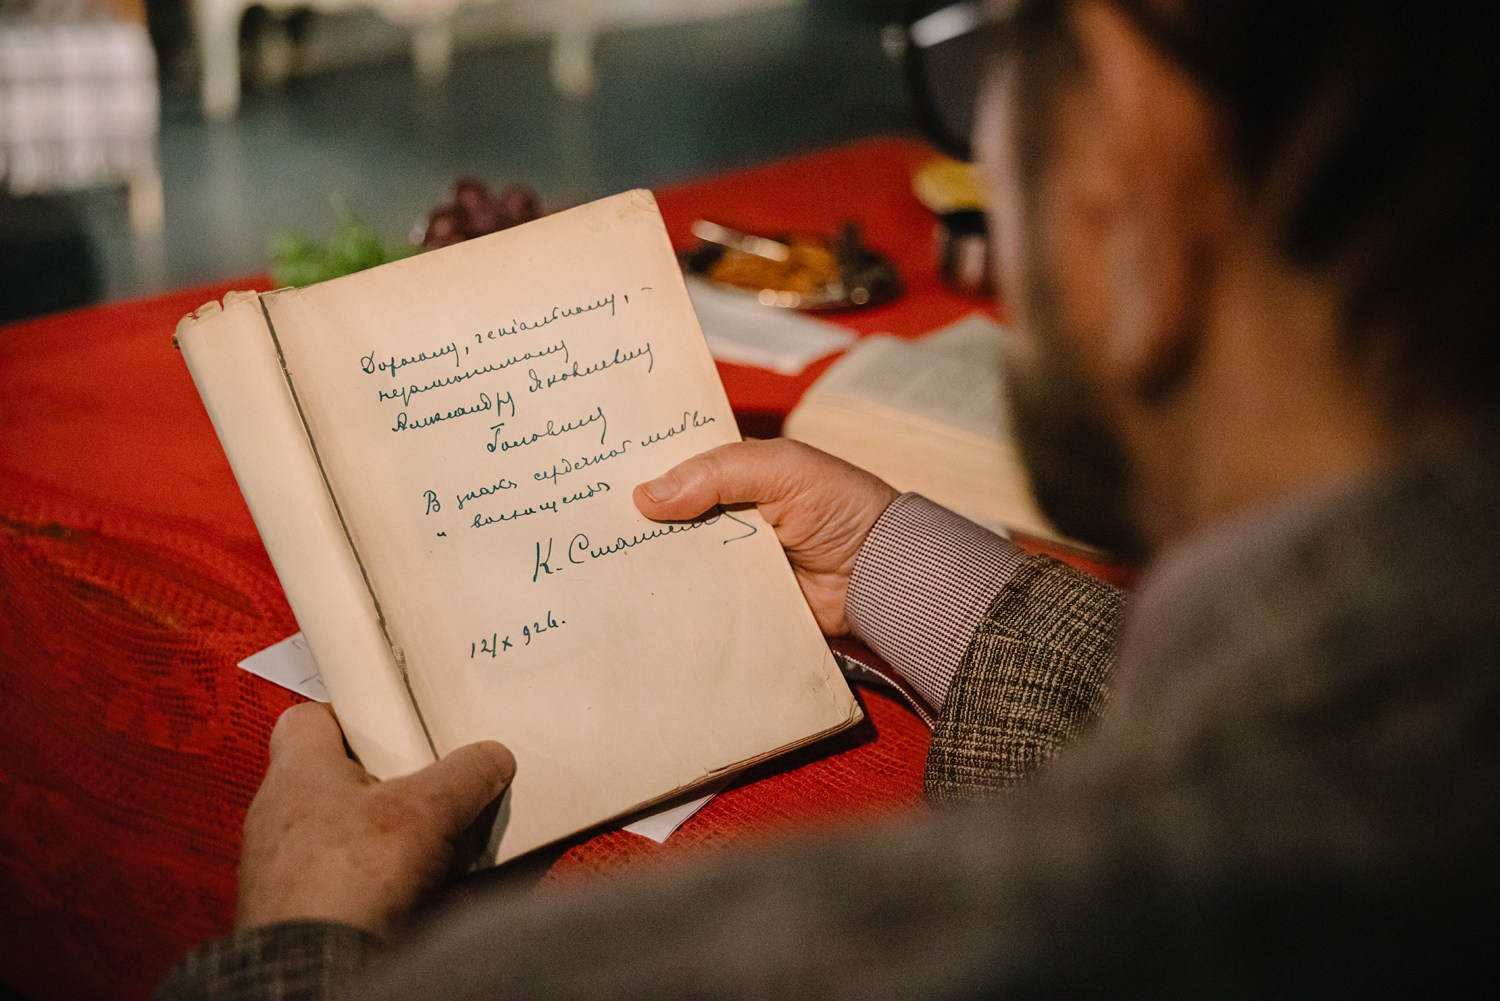 Дорогому, генiальному, -
незаменимому
Александру Яковлевичу
Головину
В знакъ сердечной любви
и восхищенiя
К. Станисл
12/X 926.